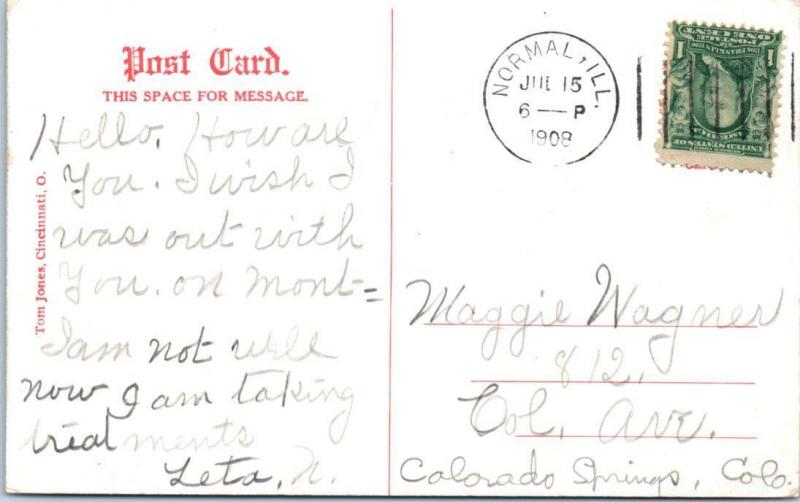 Post Card.
THIS SPACE FOR MESSAGE.
Hello. How are
You. I wish I
was out with
You. on Mont=
I am not well
now I am taking
treatments
Leta, N.
Tom Jones, Cincinnati, O.
NORMAL, ILL.
JUL 15
6 — P
1908
1 1
POSTAGE
ONE CENT
UNITED STATES OF
AMERICA
Maggie Wagner
812,
Col. Ave.
Colorado Springs, Colo.